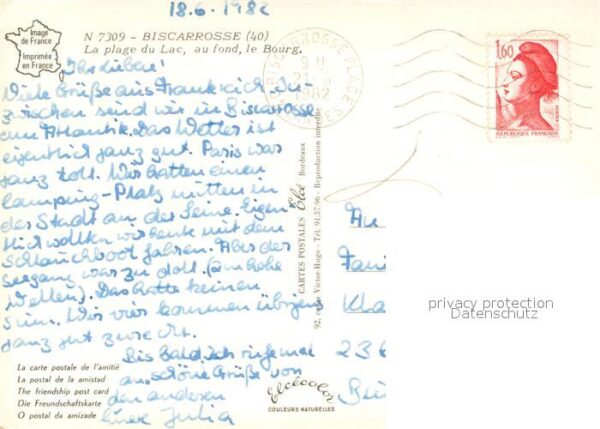 18.6.1982
Image
de France
Imprimée
en France
N 7309 - BISCARROSSE (40)
La plage du Lac, au fond, le Bourg.
Ihr Lieben!
Viele Grüße aus Frankreich. In-
zwischen sind wir in Biscarosse
am Atlantik. Das Wetter ist
eigentlich ganz gut. Paris war
ganz toll. Wir hatten einen
Camping-Platz mitten in
der Stadt an der Seine. Eigent-
lich wollten wir heute mit dem
Schlauchboot fahren. Aber der
Seegang war zu doll. (2m hohe
Wellen). Das hatte keinen
Sinn. Wir vier kommen übrigens
ganz gut zurecht.
Bis bald, ich rufe mal
an, schöne Grüße von
den anderen
Eure Julia
La carte postale de l'amitié
La postal de la amistad
The friendship post card
Die Freundschaftskarte
O postal da amizade
CARTES POSTALES Elcé Bordeaux
92, cours Victor-Hugo - Tél. 91.57.96 - Reproduction interdite
Elcécolor
COULEURS NATURELLES
BISCARROSSE-PLAGE
9 H
21
1982
1,60
REPUBLIQUE FRANÇAISE
An
Fami
Kla
236
privacy protection
Datenschutz